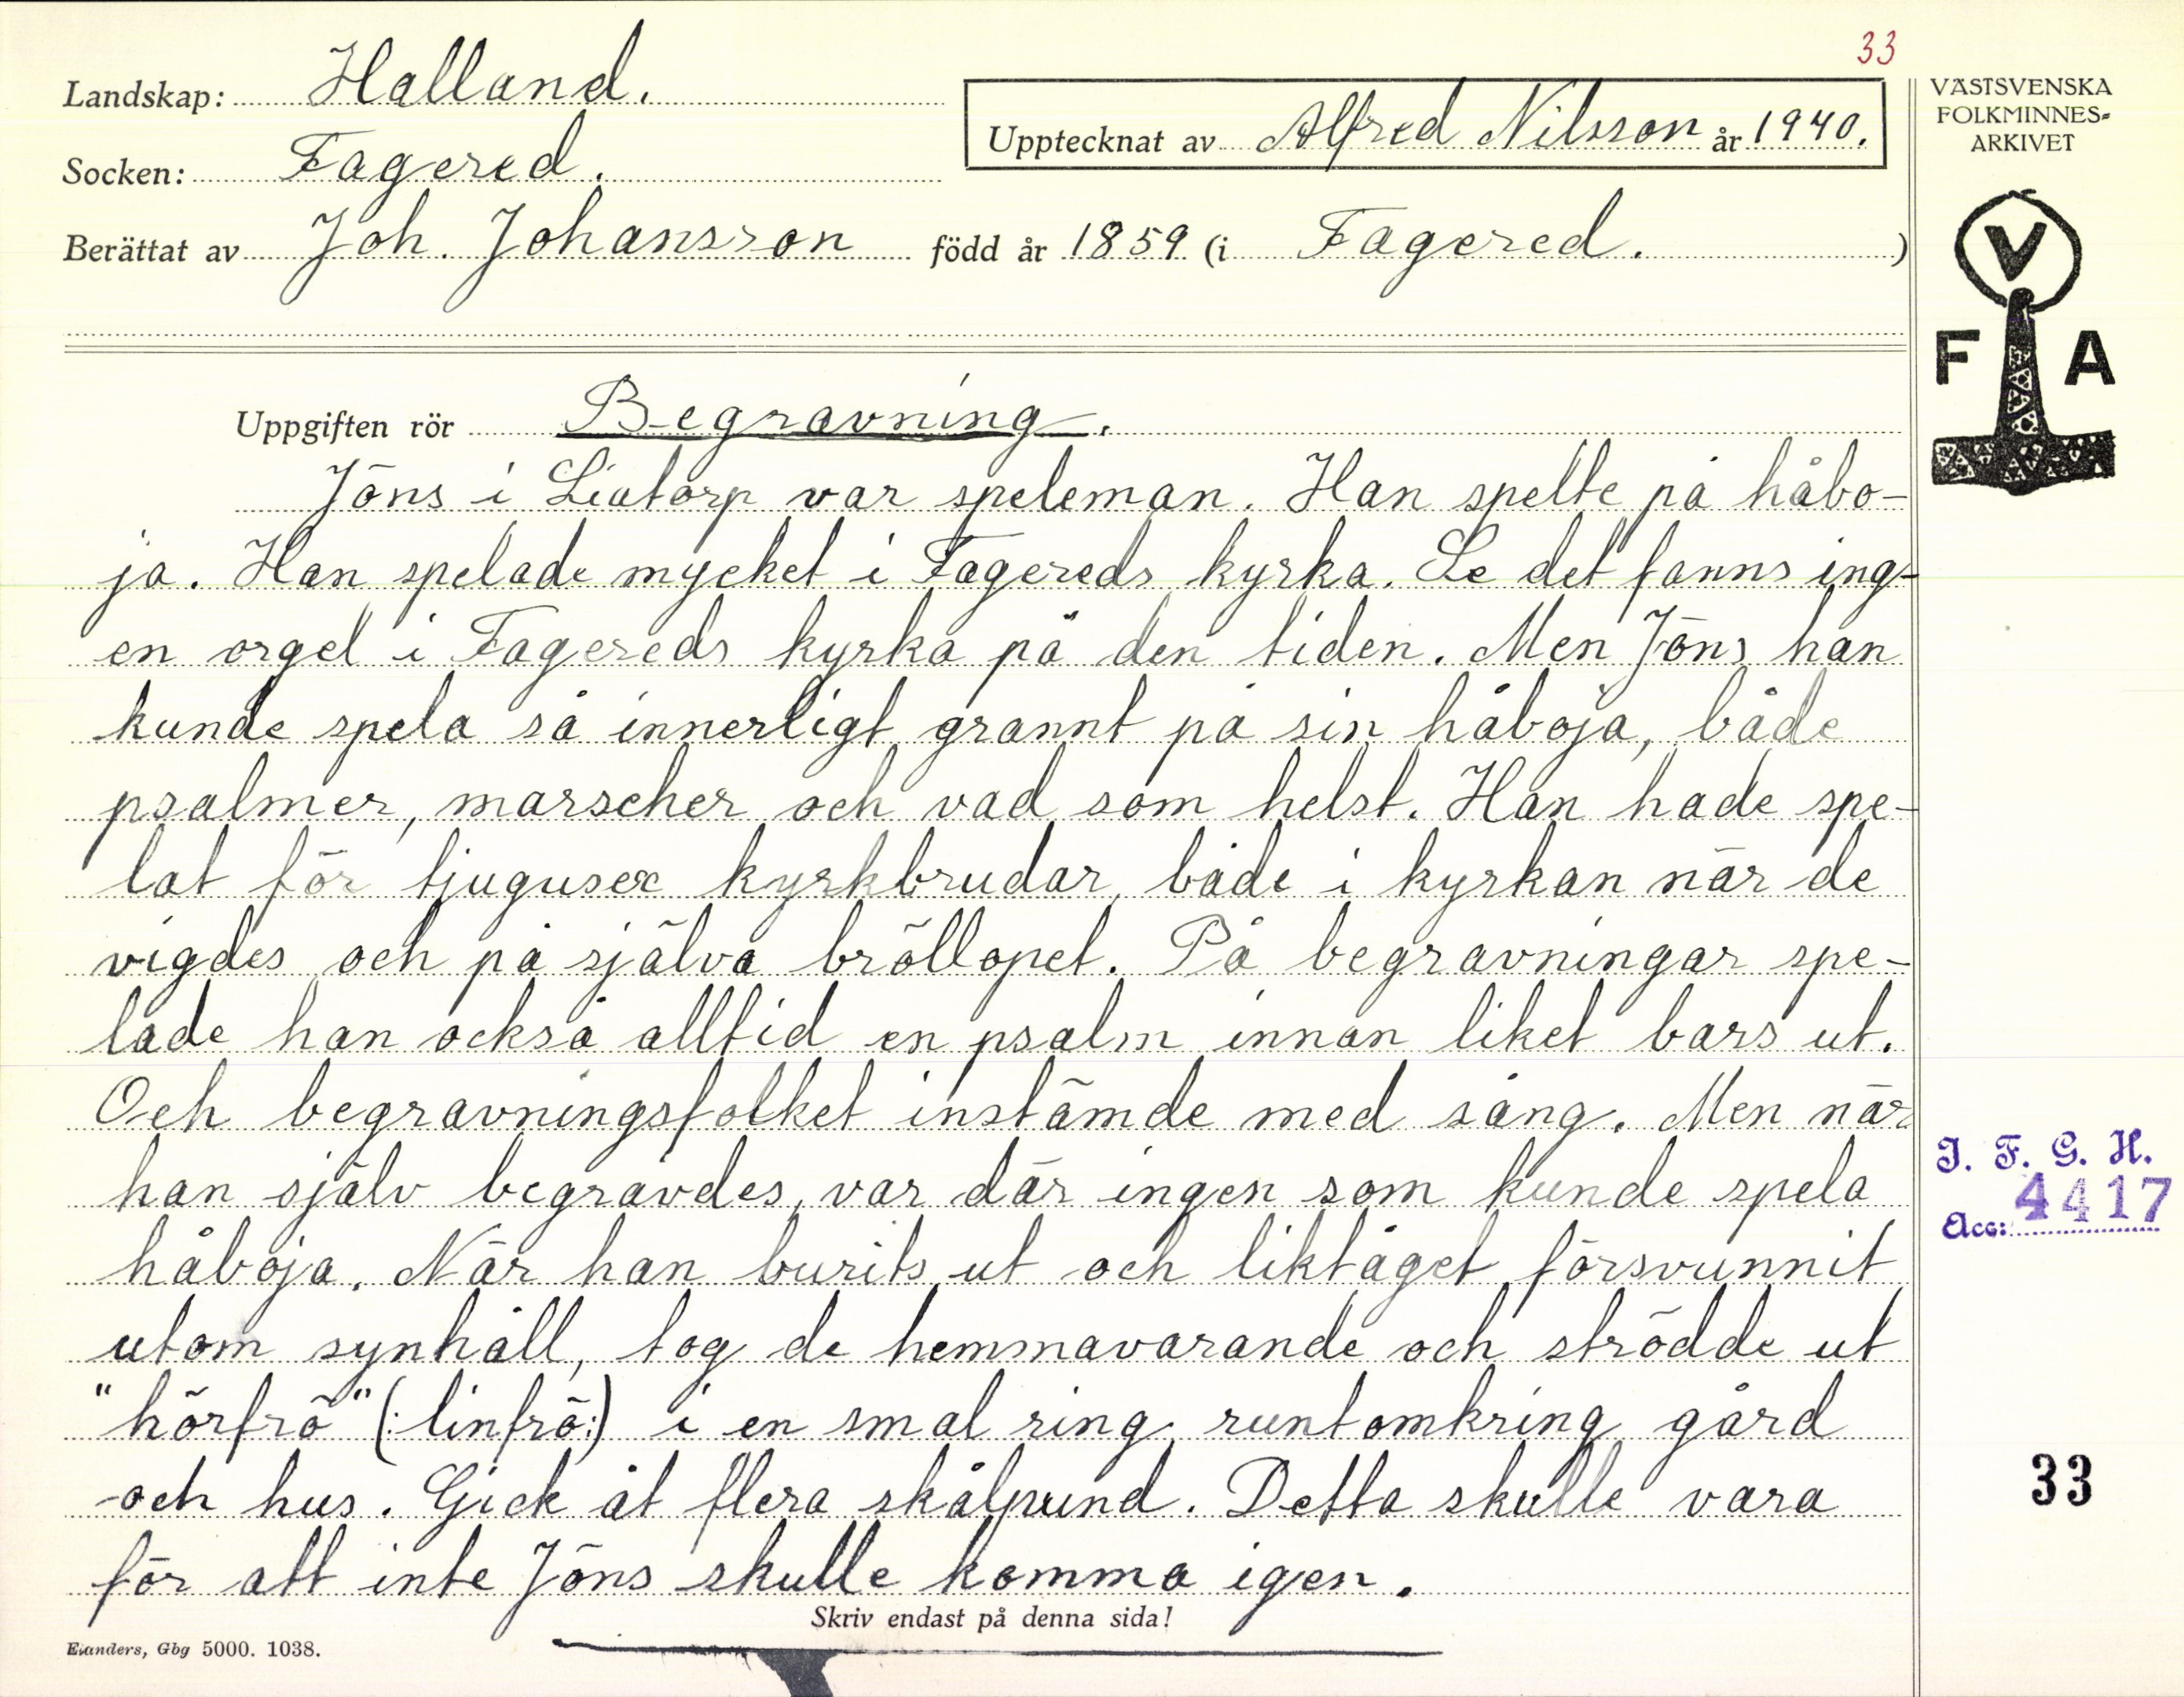 33
Landskap: Halland.
Upptecknat av Alfred Nilsson år 1940.
Socken: Fagered.
Berättat av Joh. Johansson född år 1859 (i Fagered. )
VÄSTSVENSKA
FOLKMINNES-
ARKIVET
V
F A
Uppgiften rör Begravning.
Jöns i Liatorp var speleman. Han spelte på håbo-
ja. Han spelade mycket i Fagereds kyrka. Se det fanns ing-
en orgel i Fagereds kyrka på den tiden. Men Jöns han
kunde spela så innerligt grannt på sin håboja, både
psalmer, marscher och vad som helst. Han hade spe-
lat för tjugusex kyrkbrudar, både i kyrkan när de
vigdes och på själva bröllopet. På begravningar spe-
lade han också alltid en psalm innan liket bars ut.
Och begravningsfolket instämde med sång. Men när
han själv begravdes, var där ingen som kunde spela
håboja. När han burits ut och liktåget försvunnit
utom synhåll, tog de hemmavarande och strödde ut
"hörfrö" (:linfrö:) i en smal ring runtomkring gård
och hus. Gick åt flera skålpund. Detta skulle vara
för att inte Jöns skulle komma igen.
I. F. G. H.
Acc: 4417
33
Skriv endast på denna sida!
Elanders, Gbg 5000. 1038.